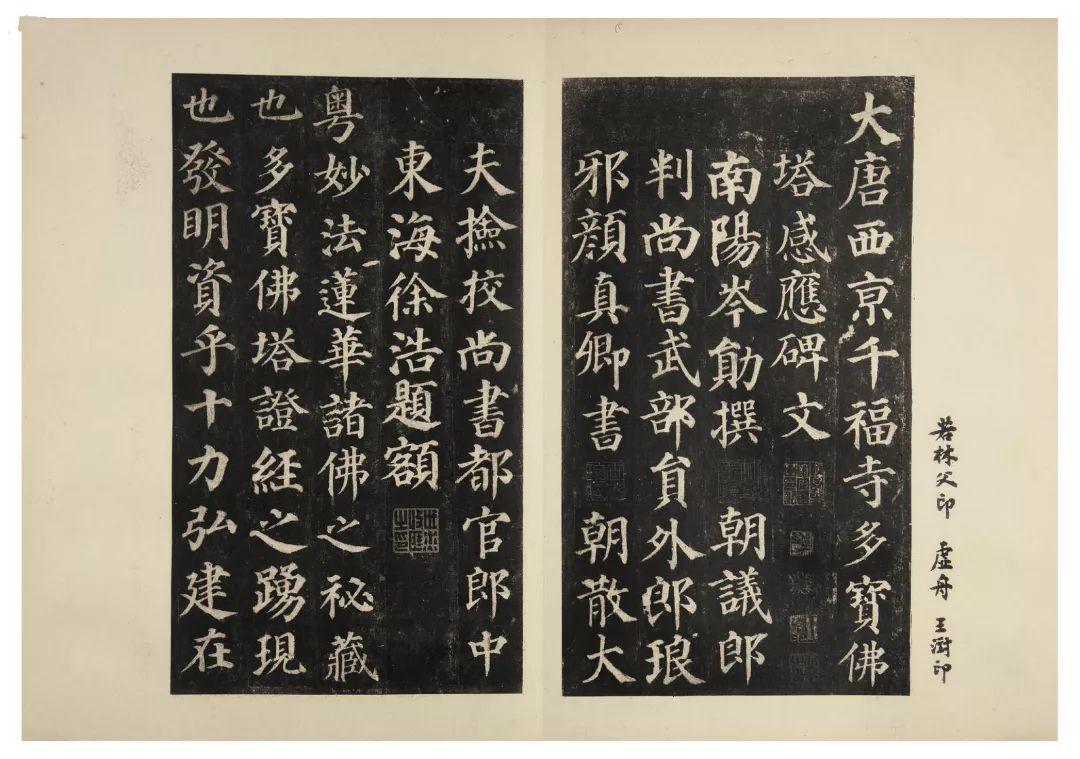 大唐西京千福寺多寶佛
塔感應碑文
南陽岑勛撰 朝議郎
判尚書武部員外郎琅
邪顏真卿書 朝散大
夫撿挍尚書都官郎中
東海徐浩題額
粵妙法蓮華諸佛之祕藏
也多寶佛塔證經之踴現
也發明資乎十力弘建在
若林父印 虛舟 王澍印